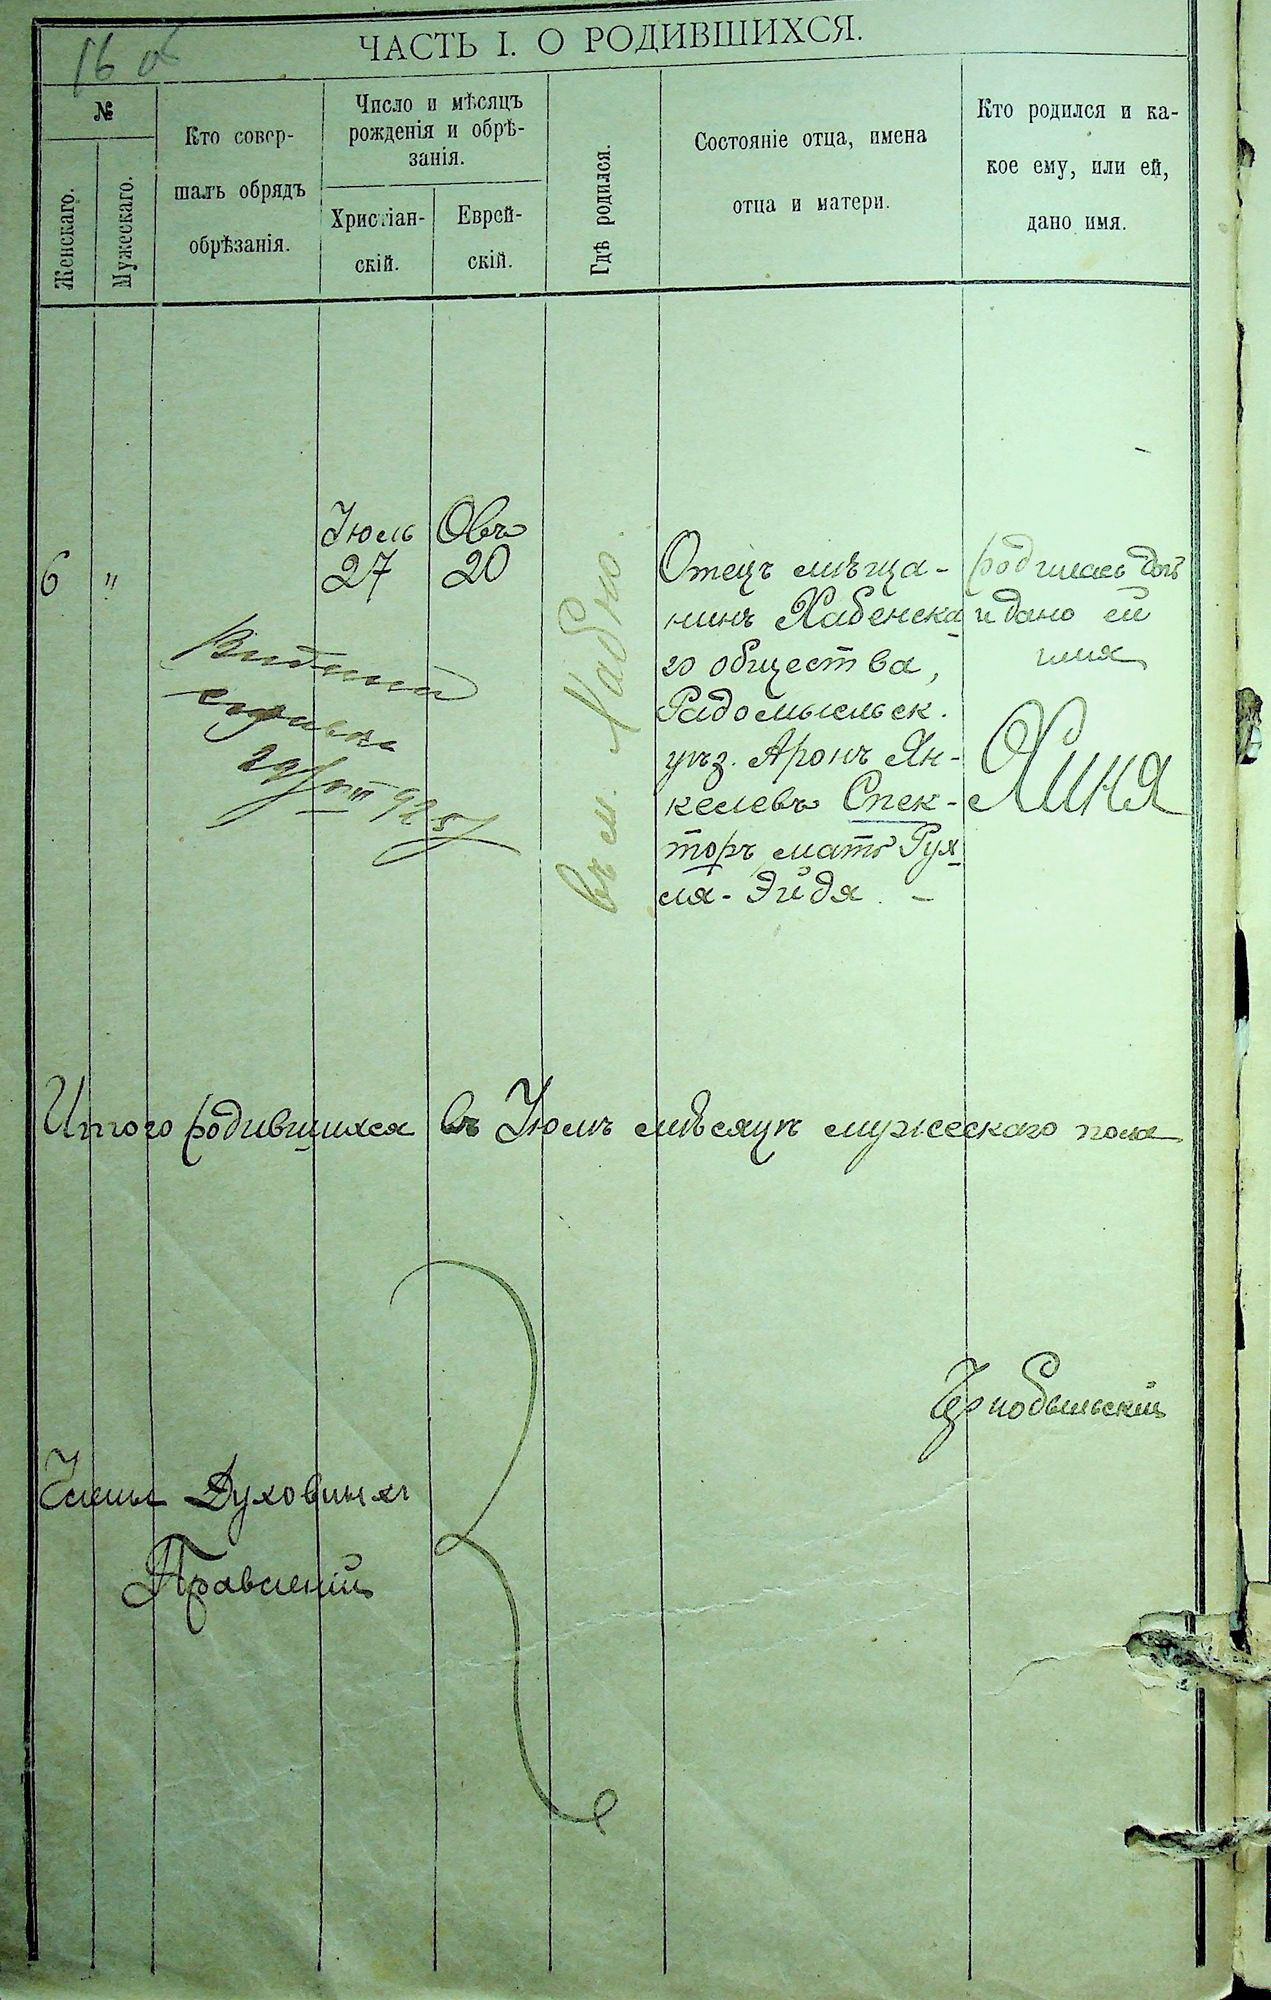 16 об
ЧАСТЬ I. О РОДИВШИХСЯ.
№
Женскаго.
Мужескаго.
Кто совер-
шалъ обрядъ
обрѣзанія.
Число и мѣсяцъ
рожденія и обрѣ-
занія.
Христіан-
скій.
Еврей-
скій.
Гдѣ родился.
Состояніе отца, имена
отца и матери.
Кто родился и ка-
кое ему, или ей,
дано имя.
6
"
Іюль
27
Овъ
20
въ м. Хабно.
Отецъ мѣща-
нинъ Хабенска
го общества,
Радомысльск.
уѣз. Аронъ Ян-
келевъ Спек-
торъ мать Рух
ля-Эйдя. –
родилась дочь
и дано ей
имя
Хиня
справка
29/VIII 925
Итого родившихся въ Іюлѣ мѣсяцѣ мужескаго пола
Чернобыльскій
Члены Духовныхъ
Правленій